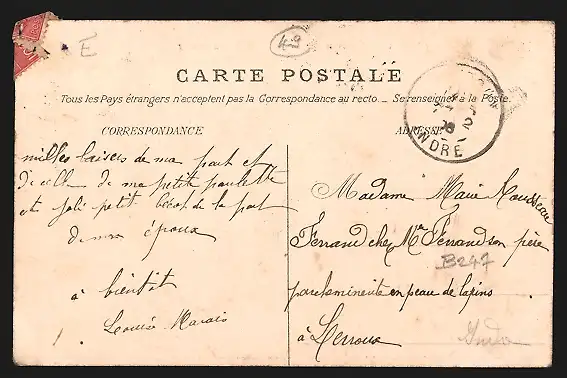 E
49
CARTE POSTALE
Tous les Pays étrangers n'acceptent pas la Correspondance au recto. _ Se renseigner à la Poste.
CORRESPONDANCE
ADRESSE
INDRE
milles baisers de ma part et
de celle de ma petite paulette
et joli petit de la part
de mon époux
à bientôt
Louise Marais
Madame Marie Rousseau
Ferrand chez Mr Ferrand son père
en peau de lapins
à Lerroux
B247
Indre